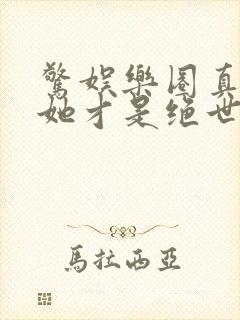 驚娛樂圈真
她才是絕世
馬拉西亞